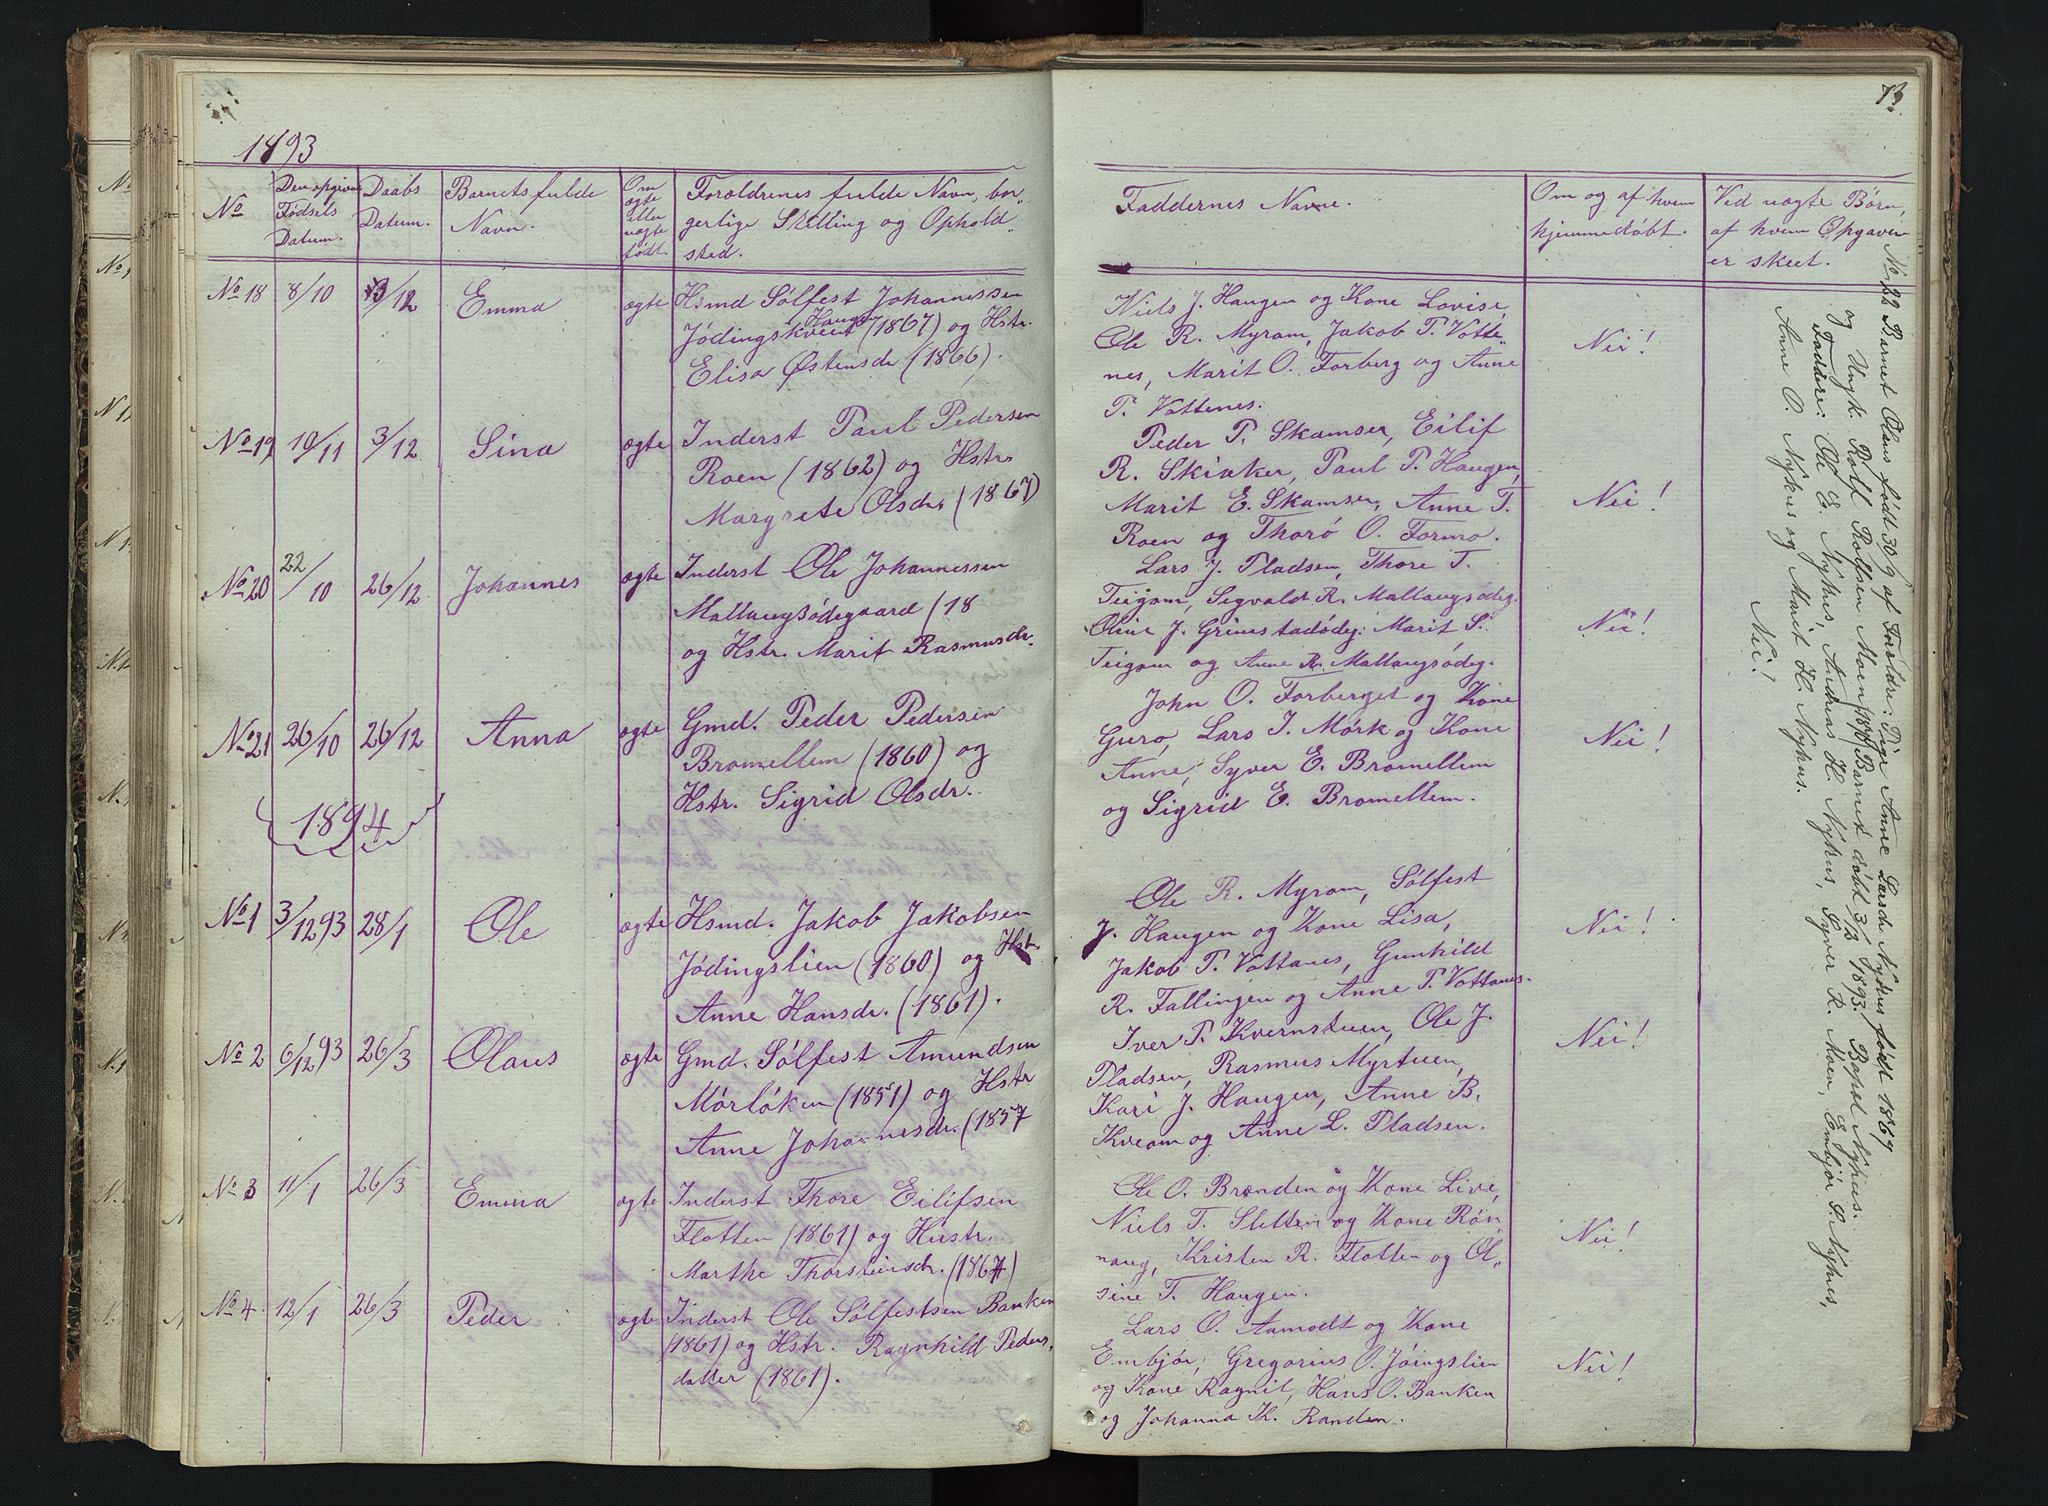 1893
73.
No
Den opgivne Fødsels Datum.
Daabs Datum.
Barnets fulde Navn.
Om ægte eller uægte født.
Forældrenes fulde Navn, bor-
gerlige Stilling og Ophold-
sted.
Faddernes Navne.
Om og af hvem
hjemmedøbt.
Ved uægte Børn,
af hvem Opgaven
er skeet.
No 18 8/10 3/12 Emma ægte Hsmd Sølfest Johannessen
Haugen
Jødingskveen (1867) og Hstr.
Elisa Østensdr (1866).
Niels J. Haugen og Kone Lovise,
Ole R. Myrom, Jakob T. Votte-
nes, Marit O. Forberg og Anne
T. Vottenes.
Nei!
No 19 10/11 3/12 Sina ægte Inderst Paul Pedersen
Roen (1862) og Hstr.
Margrete Olsdr. (1867)
Peder P. Skamser, Eilif
R. Skiaker, Paul P. Haugen,
Marit E. Skamser, Anne T.
Roen og Thorø O. Formo.
Nei!
No 20 22/10 26/12 Johannes ægte Inderst Ole Johannessen
Mallangsødegaard (18
og Hstr. Marit Rasmusdr.
Lars J. Pladsen, Thore T.
Teigom, Segvald R. Mallangsødeg.
Oline J. Grimstadødeg: Marit S.
Teigom og Anne R. Mallangsødeg.
Nei!
No 21 26/10 26/12 Anna ægte Gmd. Peder Pedersen
Bromellem (1860) og
Hstr. Sigrid Olsdr.
John O. Forberget og Kone
Guro, Lars J. Mørk og Kone
Anne, Syver E. Bromellem
og Sigrid E. Bromellem.
Nei!
1894
No 1 3/12 93 28/1 Ole ægte Hsmd. Jakob Jakobsen
Jødingslien (1860) og Hstr
Anne Hansdr. (1861).
Ole R. Myrom, Sølfest
J. Haugen og Kone Lisa,
Jakob T. Vottanes, Gunhild
R. Fallingen og Anne T. Vottanes.
Nei!
No 2 6/12 93 26/3 Olaus ægte Gmd. Sølfest Amundsen
Mørløken (1851) og Hstr
Anne Johannesdr. (1857
Iver P. Kvernstuen, Ole J.
Pladsen, Rasmus Myrtuen,
Kari J. Haugen, Anne B.
Kveom og Anne L. Pladsen.
Nei!
No 3 11/1 26/3 Emma ægte Inderst Thore Eilifsen
Flotten (1861) og Hustr.
Marthe Thorsteinsdr. (1867)
Ole O. Brenden og Kone Live,
Niels T. Sletten og Kone Røn-
naug, Kristen R. Flotten og Ol-
sine T. Haugen.
Nei!
No 4. 12/1 26/3 Peder ægte Inderst Ole Sølfestsen Banken
(1861) og Hstr. Ragnhild Peders-
datter (1861).
Lars O. Aamodt og Kone
Embjør, Gregorius O. Jøingslien
og Kone Ragnil, Hans O. Banken
og Johanna K. Randen.
Nei!
No 22 Barnet Olaus født 30/9 af Foreldre: Pige Anne Larsdr Nyhus født 1867
og Ungk. Rolf Rolfsen Moen Barnet døbt 3/12 1893. Nyhus.
Faddere: Ole E. Nyhus, Andreas H. Nyhus, Syver R. Moen, Embjør S. Nyhus,
Anne O. Nyhus og Marit H. Nyhus.
Nei!